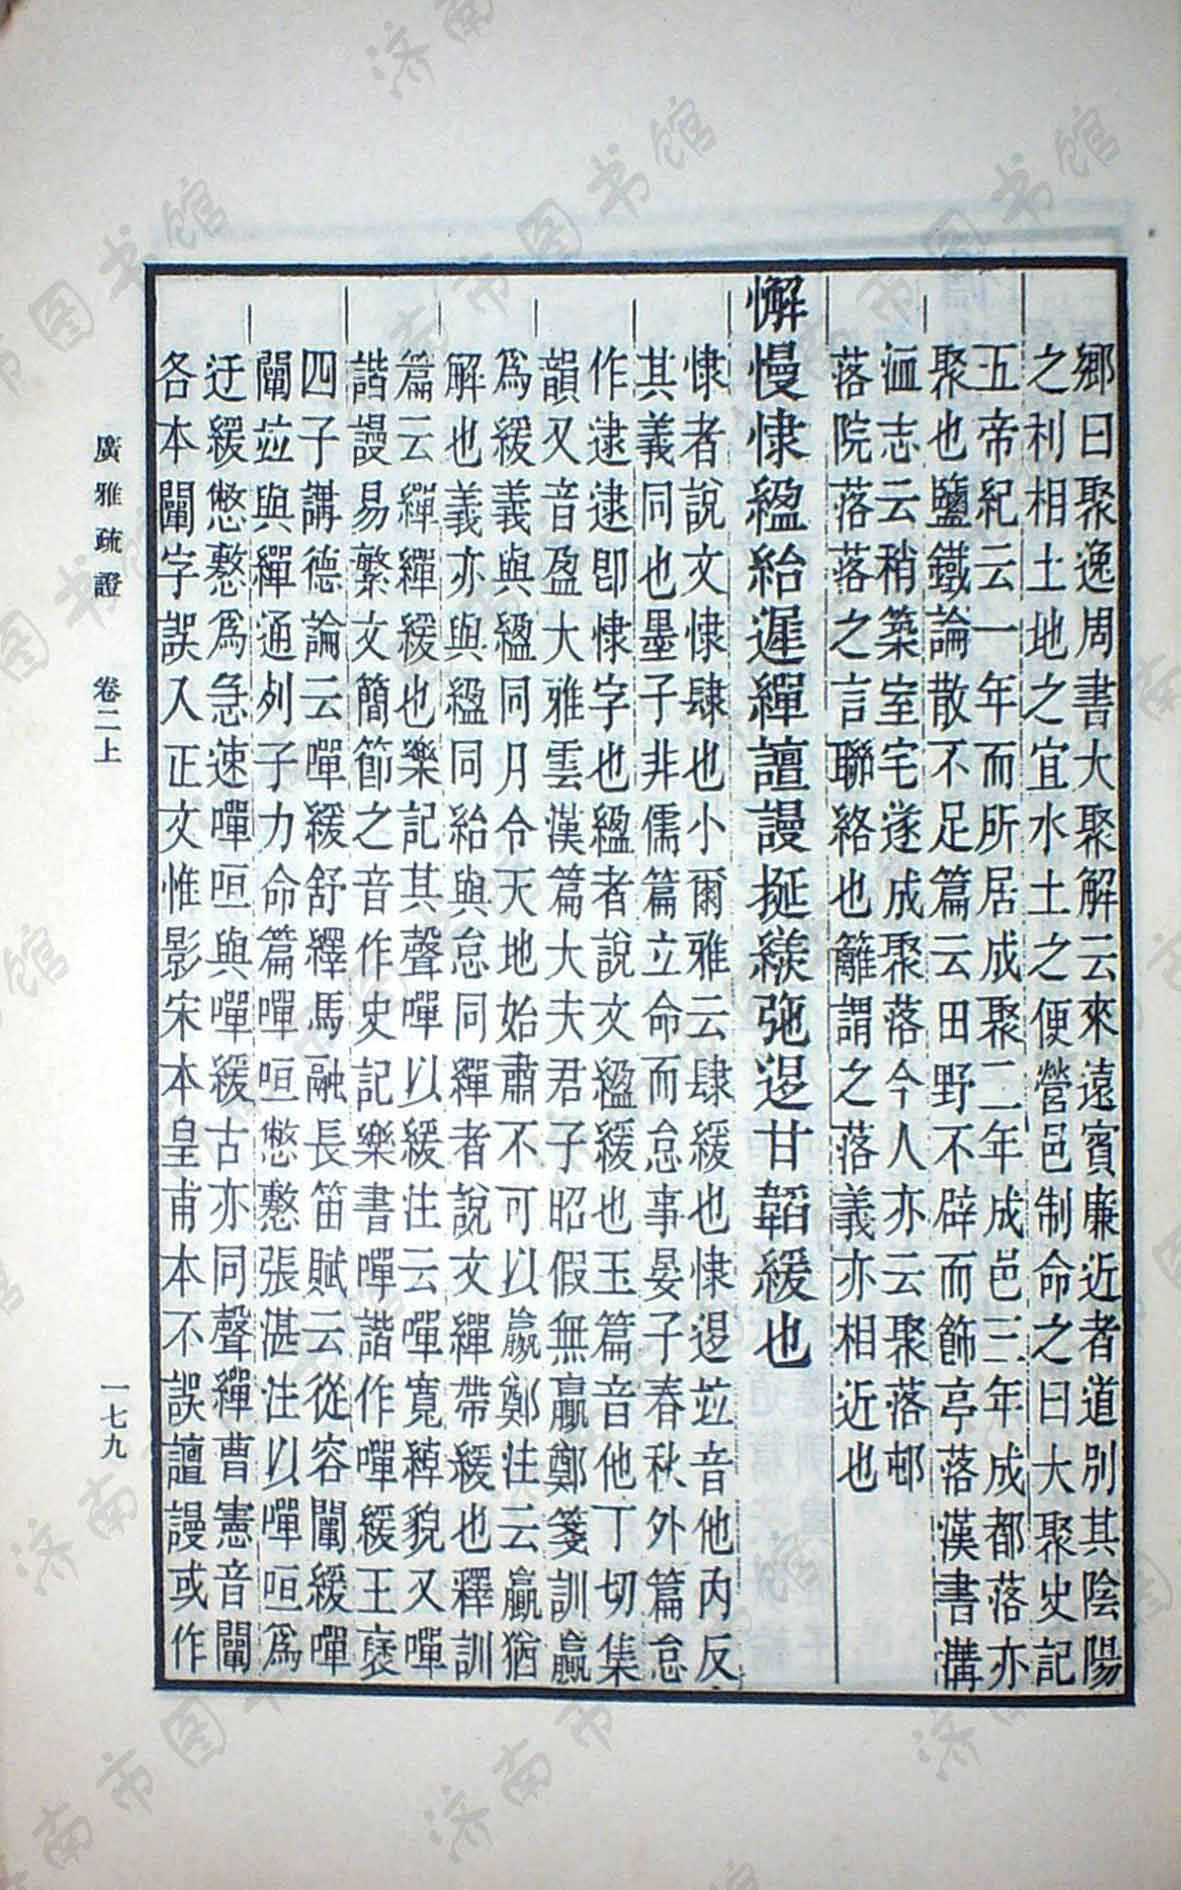 鄉曰聚逸周書大聚解云來遠賓廉近者道別其陰陽
之利相土地之宜水土之便營邑制命之曰大聚史記
五帝紀云一年而所居成聚二年成邑三年成都落亦
聚也鹽鐵論散不足篇云田野不辟而飾亭落漢書溝
洫志云稍築室宅遂成聚落今人亦云聚落邨
落院落落之言聯絡也籬謂之落義亦相近也
懈慢悚縕紿遲繟譠謾挻緩弛逷甘韜緩也
悚者說文悚肆也小爾雅云肆緩也悚逷竝音他內反
其義同也墨子非儒篇立命而怠事晏子春秋外篇怠
作逮逮卽悚字也縕者說文縕緩也玉篇音他丁切集
韻又音盈大雅雲漢篇大夫君子昭假無贏鄭箋訓贏
爲緩義與縕同月令天地始肅不可以贏鄭注云贏猶
解也義亦與縕同紿與怠同繟者說文繟帶緩也釋訓
篇云繟繟緩也樂記其聲嘽以緩注云嘽寬綽貌又嘽
諧謾易繁文簡節之音作史記樂書嘽諧作嘽緩王褒
四子講德論云嘽緩舒繹馬融長笛賦云從容闡緩嘽
闡竝與繟通列子力命篇嘽咺憋懯張湛注以嘽咺爲
迂緩憋懯爲急速嘽咺與嘽緩古亦同聲繟曹憲音闡
各本闡字誤入正文惟影宋本皇甫本不誤譠謾或作
廣雅疏證 卷二上
一七九
济南市图书馆